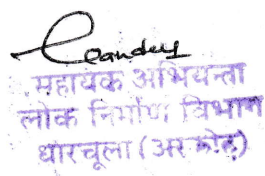 सहायक अभियन्ता
लोक निर्माण विभाग
धारचूला